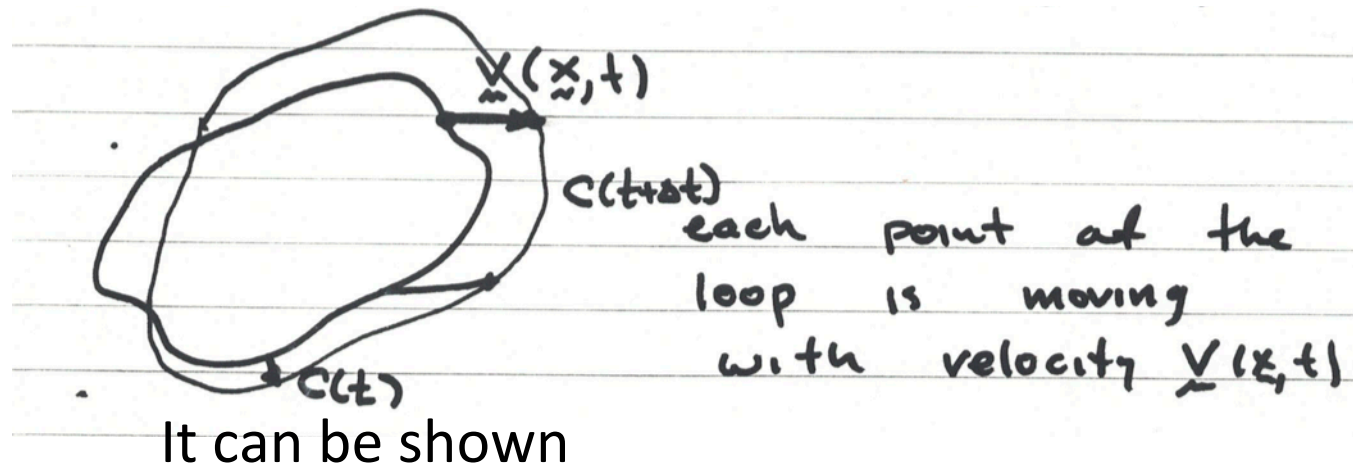 V(x,t)
C(t+Δt)
each point at the
loop is moving
with velocity V(x,t)
C(t)
It can be shown